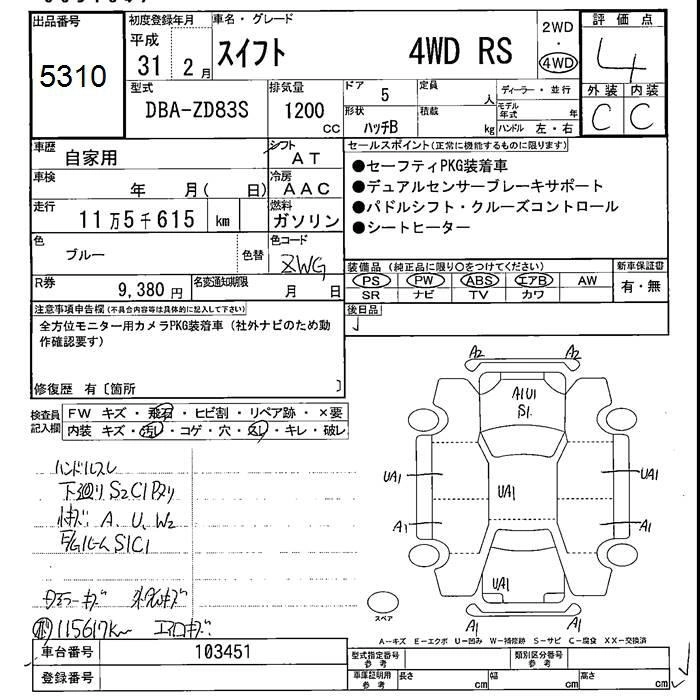 出品番号
5310
初度登録年月
平成
31 2月
車名・グレード
スイフト 4WD RS
2WD
・
4WD
評価点
4
外装 内装
C C
型式
DBA-ZD83S
排気量
1200
CC
ドア 5
形状 ハッチB
定員 人
積載 kg
ディーラー・並行
モデル年式 年
ハンドル 左・右
車歴 自家用
シフト AT
車検 年 月( 日)
冷房 AAC
走行 11万5千615 km
燃料 ガソリン
色 ブルー
色替
色コード ZWG
R券 9,380円
名変通知期限 月 日
セールスポイント(正常に機能するものに限ります)
●セーフティPKG装着車
●デュアルセンサーブレーキサポート
●パドルシフト・クルーズコントロール
●シートヒーター
装備品(純正品に限り○をつけてください)
PS PW ABS エアB AW
SR ナビ TV カワ
新車保証書
有・無
後日品
注意事項申告欄(不具合内容等は具体的に記入して下さい)
全方位モニター用カメラPKG装着車(社外ナビのため動
作確認要す)
修復歴 有〔箇所 〕
検査員
記入欄
FW キズ・飛石・ヒビ割・リペア跡・×要
内装 キズ・汚レ・コゲ・穴・スレ・キレ・破レ
ハンドルスレ
下廻り S2C1
A、U、W2
S1C1
115617km
A2 A2
A1U1
S1.
UA1 UA1 UA1
A1 A1
UA1
A1 A1
スペア
A-キズ E-エクボ U-凹み W-補修跡 S-サビ C-腐食 XX-交換済
車台番号 103451
登録番号
型式指定番号
参考
類別区分番号
参考
車庫証明用
参考
長さ cm
幅 cm
高さ cm